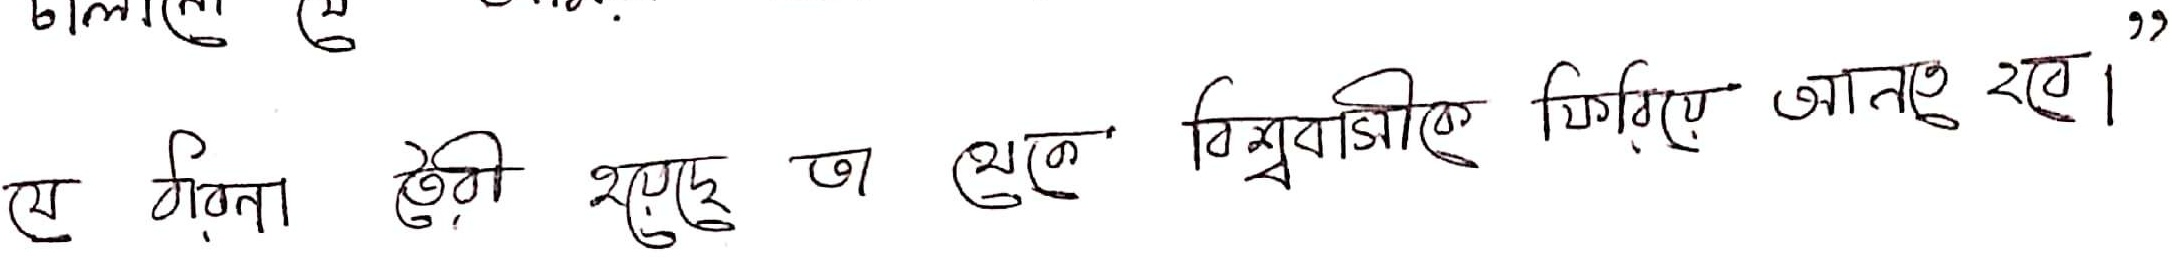 চালানো যে
যে ধারনা তৈরী হয়েছে তা থেকে বিশ্ববাসীকে ফিরিয়ে আনতে হবে।”